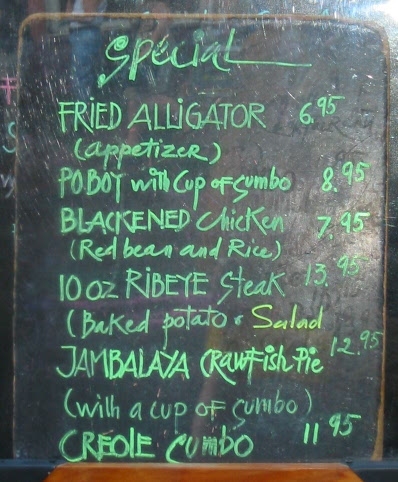 Special
FRIED ALLIGATOR 6.95
(appetizer)
PO.BOY with Cup of Gumbo 8.95
BLACKENED Chicken 7.95
(Red bean and Rice)
10 oz RIBEYE Steak 13.95
(Baked potato & Salad
JAMBALAYA CRAWFish Pie 12.95
(with a cup of Gumbo)
CREOLE GUMBO 11 95